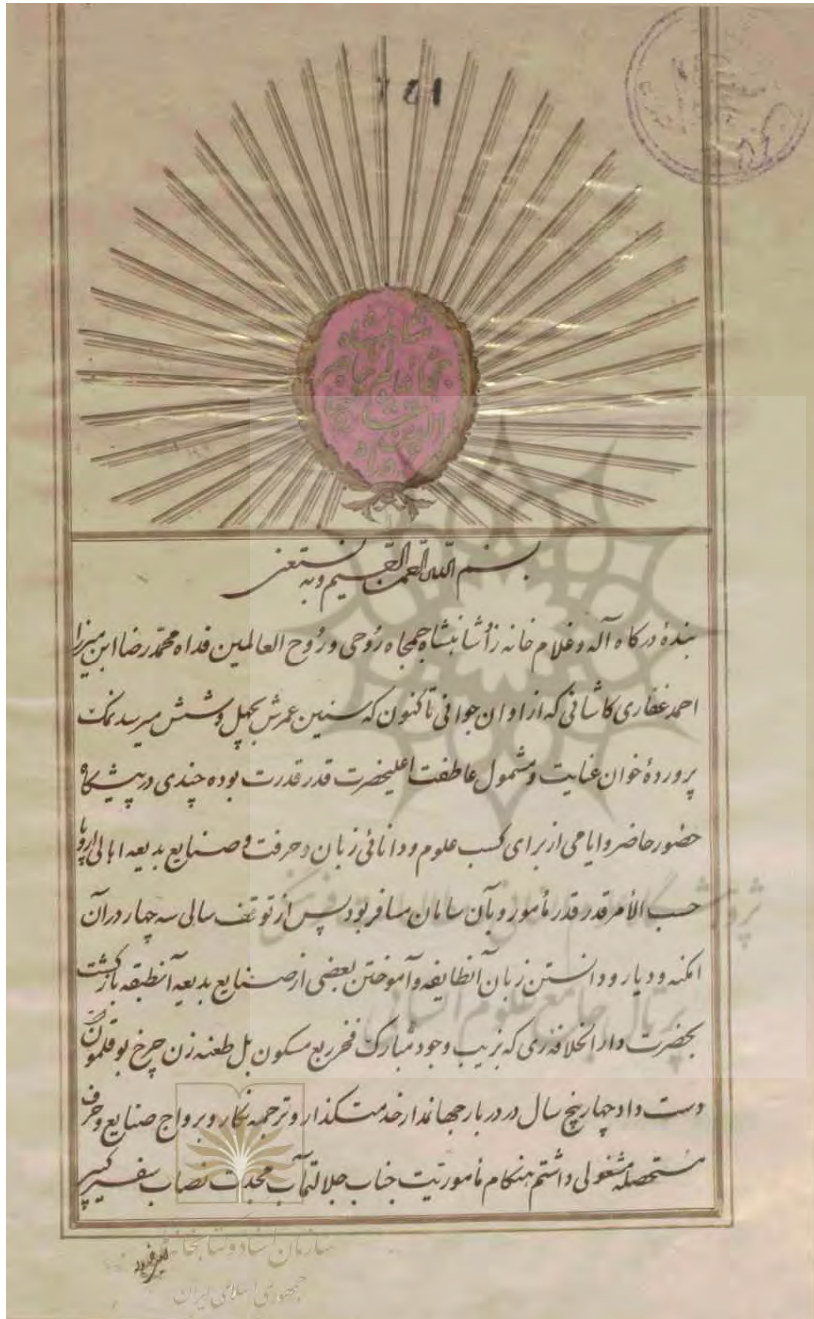 781
شاهنشاه
ناصر
الدین شاه
قاجار
بسم الله الرحمن الرحیم و به نستعین
بندۀ درگاه آله و غلام خانه زاد شاهنشاه جمجاه روحی و روح العالمین فداه محمد رضا ابن میرزا
احمد غفاری کاشانی که از اوان جوانی تاکنون که سنین عمرش بچهل و شش میرسد نمک
پروردۀ خوان عنایت و مشمول عاطفت اعلیحضرت قدر قدرت بوده چندی در پیشگاه
حضور حاضر و ایامی از برای کسب علوم و دانائی زبان و حرفت و صنایع بدیعه اهالی اروپا
حسب الأمر قدر قدر مأمور و بآن سامان مسافر بود پس از توقف سالی سه چهار در آن
امکنه و دیار و دانستن زبان آنطایفه و آموختن بعضی از صنایع بدیعه آنطبقه بازگشت
بحضرت دارالخلافه ری که بزیب وجود مبارک فخر ربع مسکون بل طعنه زن چرخ بوقلمون
دست داد چهار پنج سال در دربار جهاندار خدمتگذار و ترجمه نگار و برواج صنایع و حرف
مستحصله مشغولی داشتم هنگام مأموریت جناب جلالتمآب مجدت نصاب سفیر کبیر
پژوهشگاه علوم انسانی و مطالعات فرهنگی
پرتال جامع علوم انسانی
سازمان اسناد و کتابخانه
جمهوری اسلامی ایران